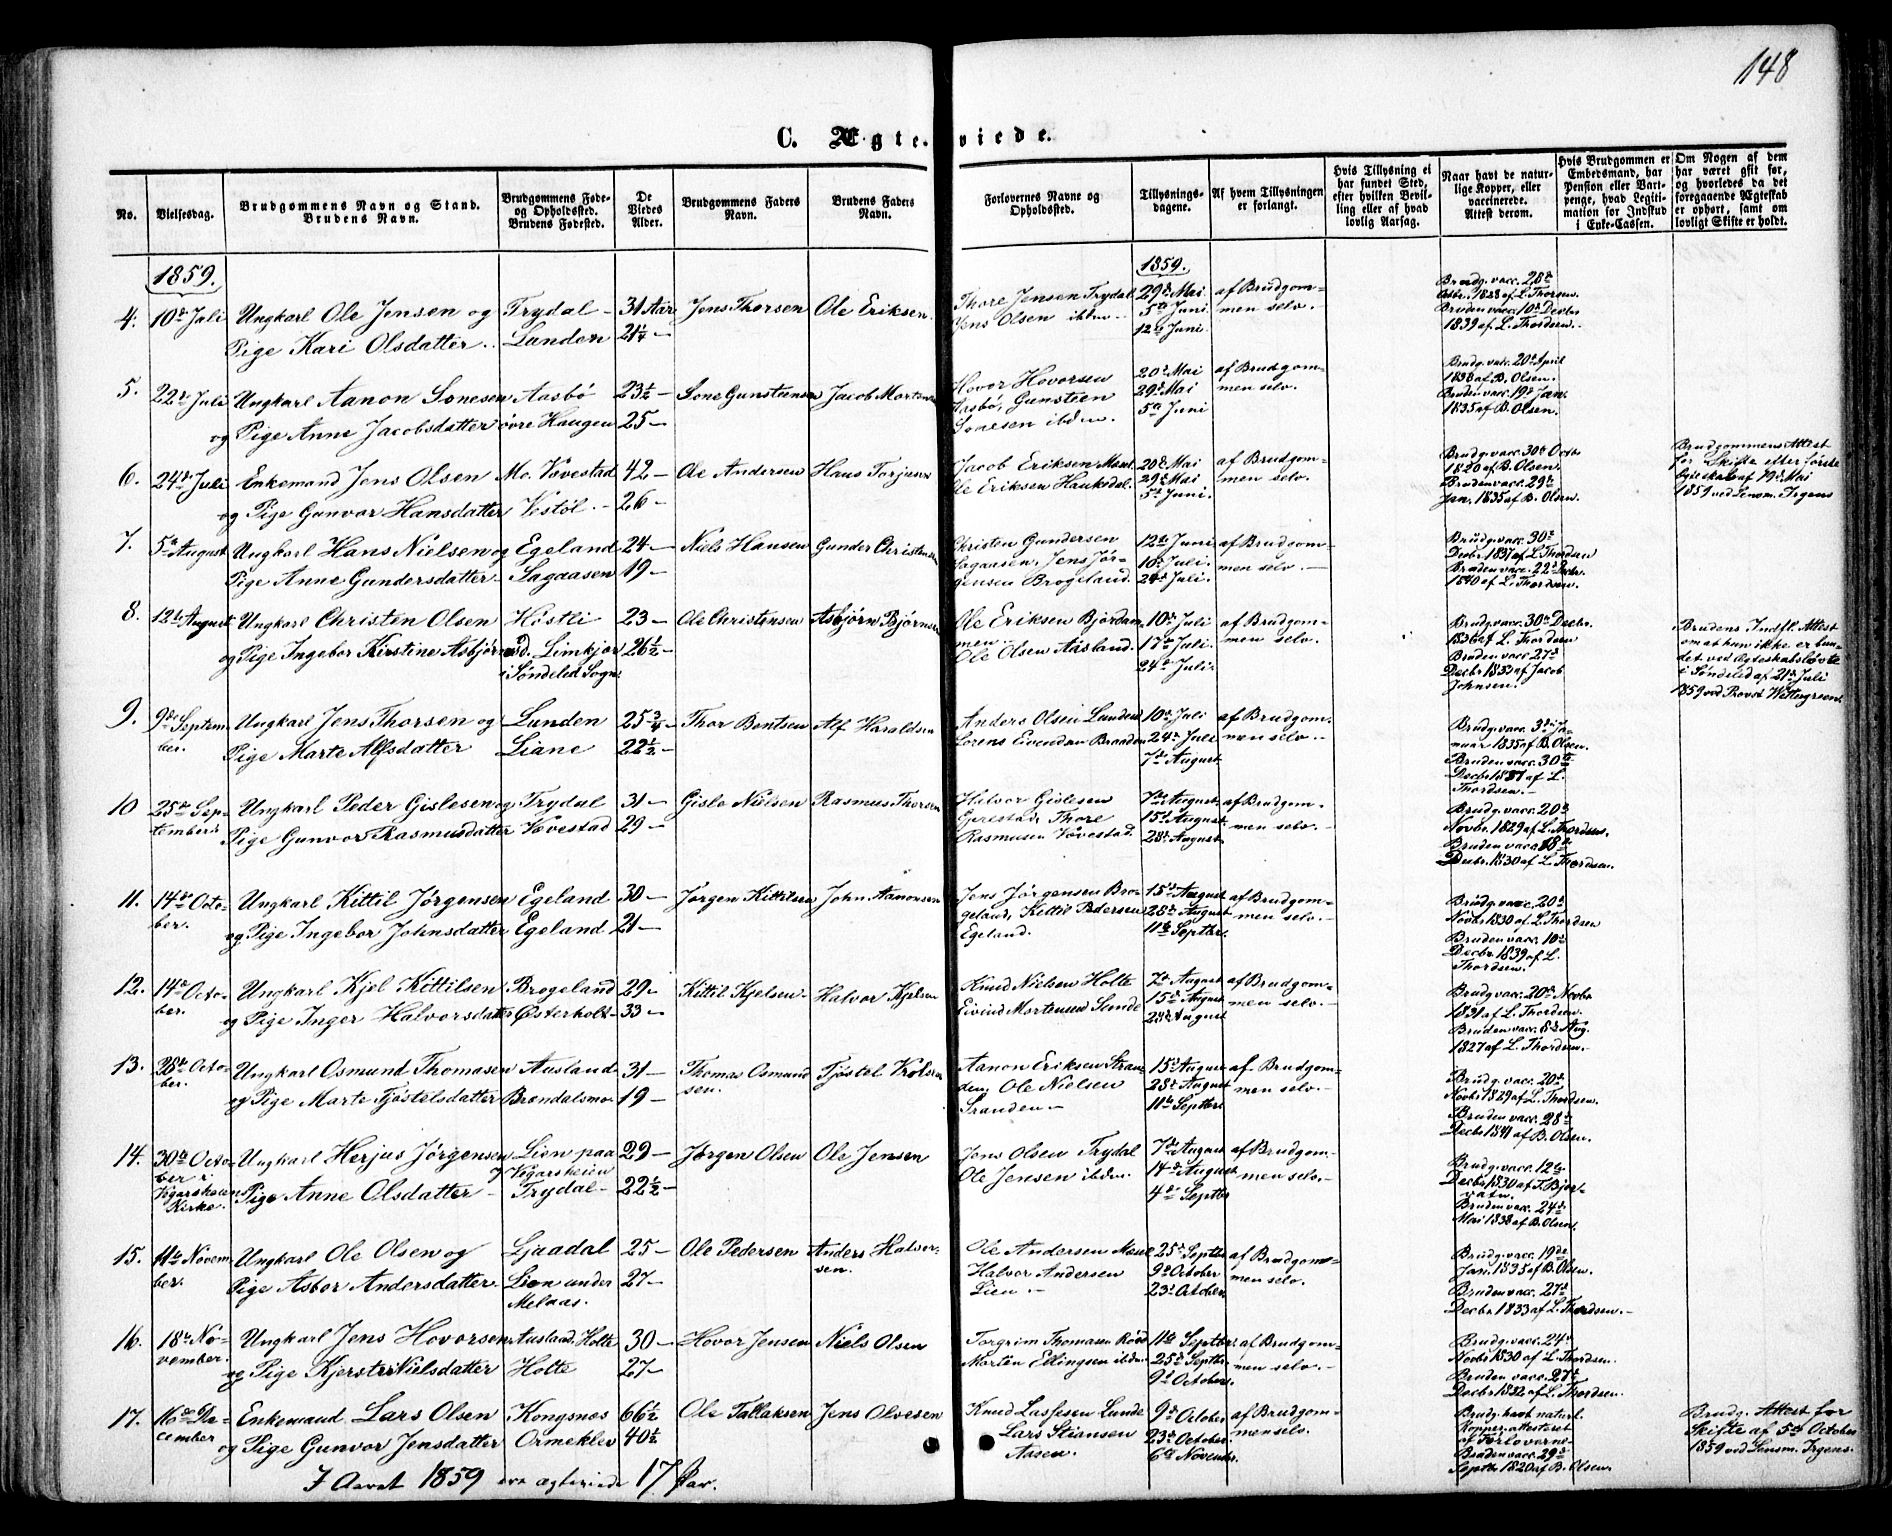 148
C. Ægteviede.
No.
Vielsesdag.
Brudgommens Navn og Stand.
Brudens Navn.
Brudgommens Føde-
og Opholdsted.
Brudens Fødested.
De
Viedes
Alder.
Brudgommens Faders
Navn.
Brudens Faders
Navn.
Forlovernes Navne og
Opholdssted.
Tillysnings-
dagene.
Af hvem Tillysningen
er forlangt.
Hvis Tillysning ei
har fundet Sted,
efter hvilken Bevil-
ling eller af hvad
lovlig Aarsag.
Naar havt de natur-
lige Kopper, eller
vaccinerede.
Attest derom.
Hvis Brudgommen er
Embedsmand, har
Pension eller Vart-
penge, hvad Legiti-
mation for Indskud
i Enke-Cassen.
Om Nogen af dem
har været gift før,
og hvorledes da det
foregaaende Ægteskab
er ophørt, samt om
lovligt Skifte er holdt.
1859.
1859.
4. 10de Juli Ungkarl Ole Jensen og Trydal 31 Aar Jens Thorsen Ole Eriksen
Pige Kari Olsdatter Lunden 21¼
Thore Jensen Trydal 29de Mai af Brudgom-
Jens Olsen ibdm 5te Juni men selv.
12te Juni
Brudg. vacc. 28de
Octbr. 1828 af L. Thorsen.
Bruden vacc. 10de Decbr
1839 af L. Thordsen.
5. 22de Juli Ungkarl Aanon Sonesen Aasbø 23½ Sone Gunstensen Jacob Mortensen
og Pige Anne Jacobsdatter øvre Haugen 25
Hovor Hovorsen 20de Mai af Brudgom-
Aasbø, Gunstien 29de Mai men selv.
Sonesen ibdm. 5te Juni
Brudg. vacc. 20de April
1838 af B. Olsen.
Bruden vacc. 19de Jan.
1835 af B. Olsen.
6. 24de Juli Enkemand Jens Olsen Mo. Vævestad 42 Ole Andersen Hans Torjusen
og Pige Gunvor Hansdatter Vestøl 26
Jacob Eriksen 20de Mai af Brudgom-
Ole Eriksen Hauksdal. 29de Mai men selv.
5te Juni.
Brudg. vacc. 30te Octbr
1820 af B. Olsen.
Bruden vacc. 29de
Jan. 1835 af B. Olsen
Brudgommens Attest
for Skifte efter første
Egteskab af 19de Mai
1859 ved Lensm. Irgens
7. 5te August Ungkarl Hans Nielsen og Egeland 24 Niels Hansen Gunder Christensen
Pige Anne Gundersdatter Sagaasen 19
Christen Gundersen 12te Juni af Brudgom-
Sagaasen, Jens Jør- 10de Juli. men selv.
gensen Brogeland. 24de Juli.
Brudg. vacc. 30te
Decbr. 1837 af L. Thordsen
Bruden vacc. 22de Decbr.
1840 af L. Thordsen.
8. 12te August Ungkarl Christen Olsen Høstli 23 Ole Christensen Asbjørn Bjørnsen
og Pige Ingebor Kirstine Asbjørnsd. Limkjer 26½
i Søndeled Sogn
Ole Eriksen Bjørdam- 10de Juli af Brudgom-
men 17de Juli. men selv.
Ole Olsen Aasland. 24de Juli.
Brudg. vacc. 30te Decbr.
1836 af L. Thordsen
Bruden vacc. 27de
Decbr. 1833 af Jacob
Johnsen.
Brudens Indfl. Attest
om at hun ikke er bun-
det ved Egteskabsløvte
i Søndeled af 21de Juli
1859 ved Provst Wettergreen.
9. 9de Septem- Ungkarl Jens Thorsen og Lunden 25¾ Thor Bentsen Alf Haraldsen
ber. Pige Marte Alfsdatter Liane 22½
Anders Olsen Lunden 10de Juli af Brudgom-
Lorens Evendsen Braaden 24de Juli men selv.
7de August
Brudg. vacc. 3de Ja-
nuar 1835 af B. Olsen.
Bruden vacc. 30te
Decbr. 1837 af L.
Thordsen.
10 25de Sep- Ungkarl Peder Gislesen og Trydal 31 Gisle Nielsen Rasmus Thorsen
tember. Pige Gunvor Rasmusdatter Vævestad 29
Halvor Gislesen 7de August af Brudgom-
Gjerestad, Thore 15de August men selv.
Rasmusen Vævestad. 28de August
Brudg. vacc. 20de
Novbr. 1829 af L. Thordsen.
Bruden vacc. 18de
Decbr. 1830 af L. Thordsen.
11. 14de Octo- Ungkarl Kittil Jørgensen Egeland 30 Jørgen Kittilsen John Aanonsen
ber. og Pige Ingebor Johnsdatter Egeland 21
Jens Jørgensen Bro- 15de August af Brudgom-
geland, Kittil Pedersen 28de August men selv.
Egeland. 11te Septbr.
Brudg. vacc. 20de
Novbr. 1830 af L. Thordsen
Bruden vacc. 10de
Decbr. 1839 af L.
Thordsen.
12. 14de Octo- Ungkarl Kjel Kittilsen Brogeland 29 Kittil Kjelsen Halvor Kjelsen
ber. og Pige Inger Halvorsdatter Østerholt 33
Knud Nielsen Holte 7de August af Brudgom-
Eivind Mortensen Sunde 15de August men selv.
28de August
Brudg. vacc. 20de Novbr
1831 af L. Thordsen.
Bruden vacc. 8de Aug.
1827 af L. Thordsen.
13. 28de Octo- Ungkarl Osmund Thomasen Ausland 31 Thomas Osmund- Tjøstel Krolsen
ber. og Pige Marte Tjøstelsdatter Brøndalsmo 19 sen.
Aanon Eriksen Stran- 15de August af Brudgom-
den, Ole Nielsen 28de August men selv.
Stranden 11te Septbr.
Brudg. vacc. 20de
Novbr 1829 af L. Thordsen.
Bruden vacc. 28de
Decbr 1841 af B. Olsen.
14. 30te Octo- Ungkarl Herjus Jørgensen Lien paa 29 Jørgen Olsen Ole Jensen
ber i og Vegarsheien
Vegarsheien Pige Anne Olsdatter Trydal 22½
Kirke.
Jens Olsen Trydal 7de August af Brudgom-
Ole Jensen ibdm. 14de August men selv.
4de Septbr
Brudg. vacc. 12te
Decbr. 1830 af T. Bjor-
vatn.
Bruden vacc. 24de
Mai 1838 af B. Olsen.
15. 11te Novem- Ungkarl Ole Olsen og Ljaadal 25 Ole Pedersen Anders Halvor-
ber. Pige Asbor Andersdatter Lien under 27 sen.
Melaas.
Ole Andersen Moue 25de Septbr af Brudgom-
Halvor Andersen 9de October men selv.
Lien 23de October
Brudg. vacc. 19de
Jan. 1835 af B. Olsen.
Bruden vacc. 27de
Decbr. 1833 af L. Thordsen.
16. 18de No- Ungkarl Jens Hovorsen Ausland, Holte 30 Hovor Jensen Niels Olsen
vember. og Pige Kjersti Nielsdatter Holte 27
Torgrim Thomasen 11te Septbr. af Brudgom-
Martin Ellingsen ibdm. 25de Septbr. men selv.
9de October.
Brudg. vacc. 24de
Novbr 1830 af L. Thordsen.
Bruden vacc. 27de
Decbr 1832 af L. Thordsen.
17. 16de De- Enkemand Lars Olsen Kongsnes 66½ Ole Tallaksen Jens Olvesen
cember og Pige Gunvor Jensdatter Ormeklev 40½
Knud Lassesen Lunde 9de October af Brudgom-
Lars Stiansen 23de October men selv.
Aasen 6te Novembr.
Brudg. havt naturl.
Kopper, attesteret
af Forloverne.
Bruden vacc. 29de
Septbr 1820 af B. Olsen.
Brudg. Attest for
Skifte af 5te October
1859 ved Lensm. Irgens.
I Aaret 1859 ere ægteviede 17 Par.